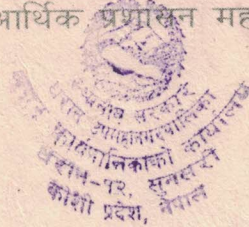 आर्थिक प्रशासन मह
स्थानीय सरकार
धरान उपमहानगरपालिका
नगर कार्यपालिकाको कार्यालय
धरान-१२, सुनसरी
कोशी प्रदेश, नेपाल